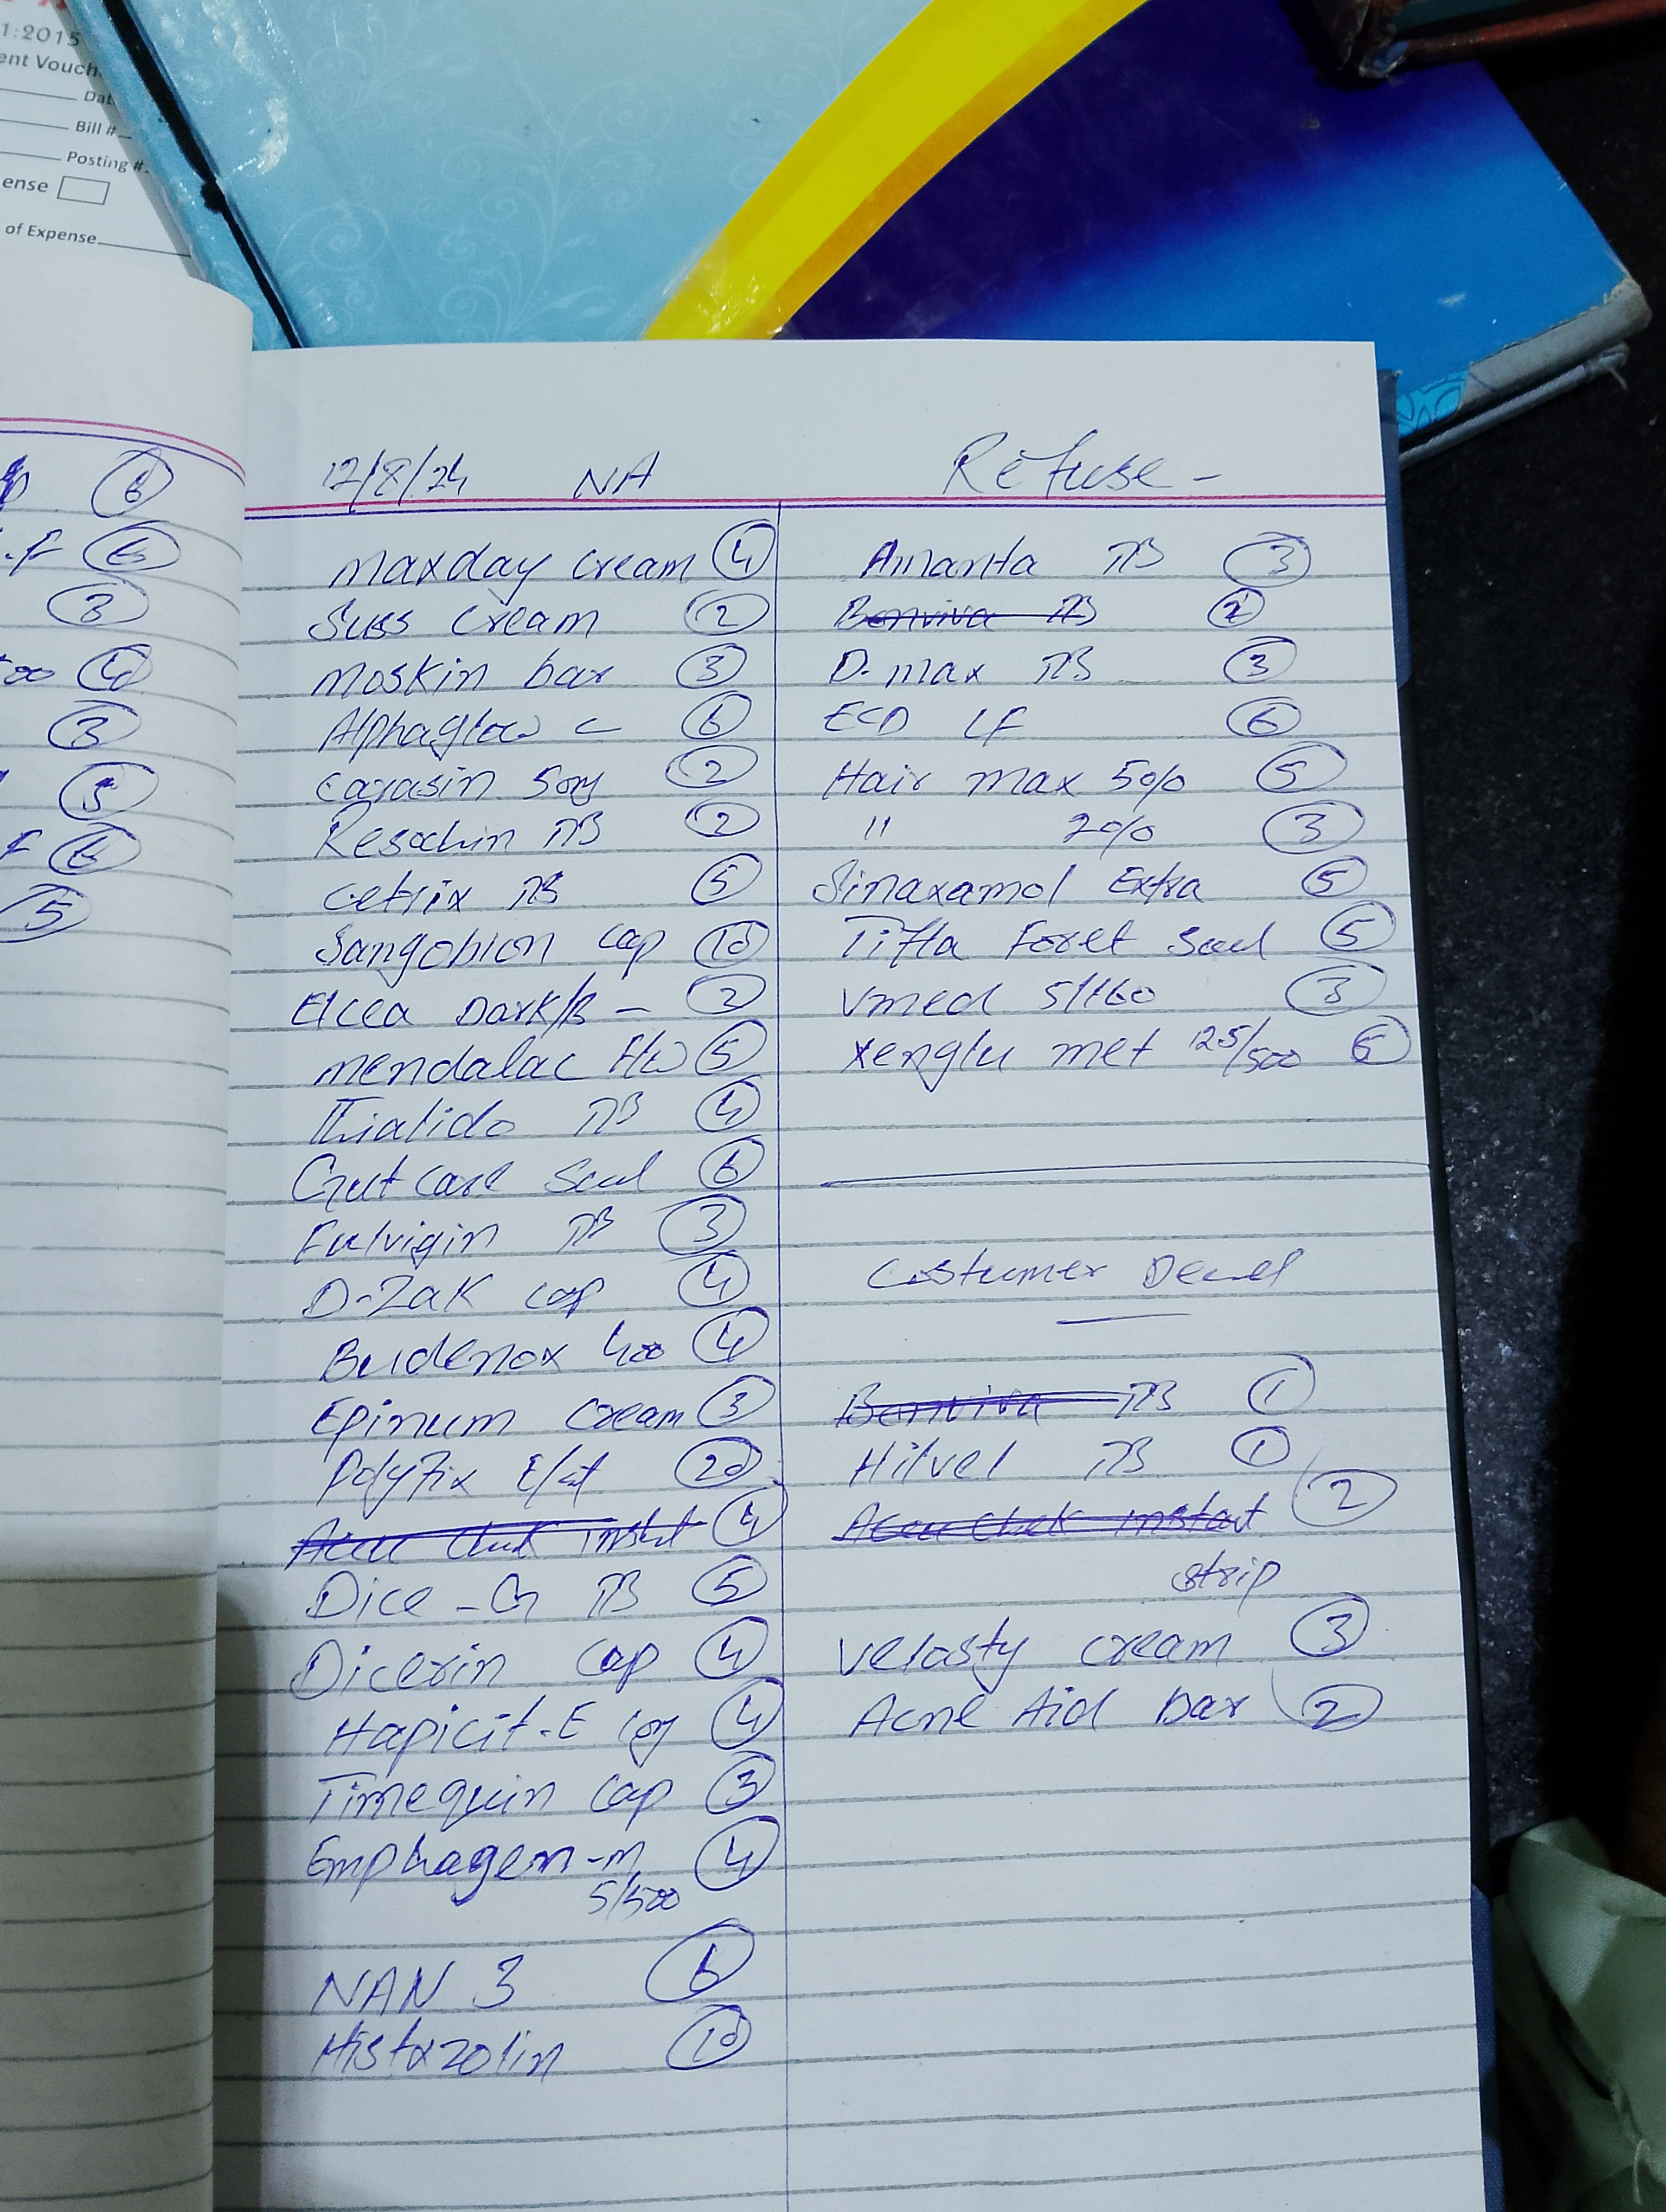 1:2015
ent Vouch
Dat
Bill #
Posting #.
ense
of Expense
6
.f 6
3
4
3
5
f 6
5
12/8/24 NA
maxday cream 4
Suss cream 2
moskin bar 3
Alphaglow c 6
2
Resochin TB 2
cetrix TB 5
Sangobion cap 10
Elcea Dark/B - 2
mendalac F/W 5
Thialido TB 4
Gut care 6
Fulvigin TB 3
D-Zak cap 4
Budenox 400 4
Epinum cream 3
Polyfix 20
Accu Chek instnt 4
Dice - G TB 5
Dicerin cap 4
Hapicit-E 4
Timequin cap 3
Emphagem-m 4
5/500
NAN 3 6
Histazolin 10
Refuse -
TB 3
Bonviva TB 2
D-max TB 3
ECD LF 6
Hair max 5% 5
" 2% 3
Sinaxamol Extra 5
Tifla Foret 5
Vmed 5/160 3
Xenglu met 12.5/500 6
Costumer
Bonviva TB 1
Hilvel TB 1
Accu Chek instant 2
strip
Velosty cream 3
Acne Aid bar 2